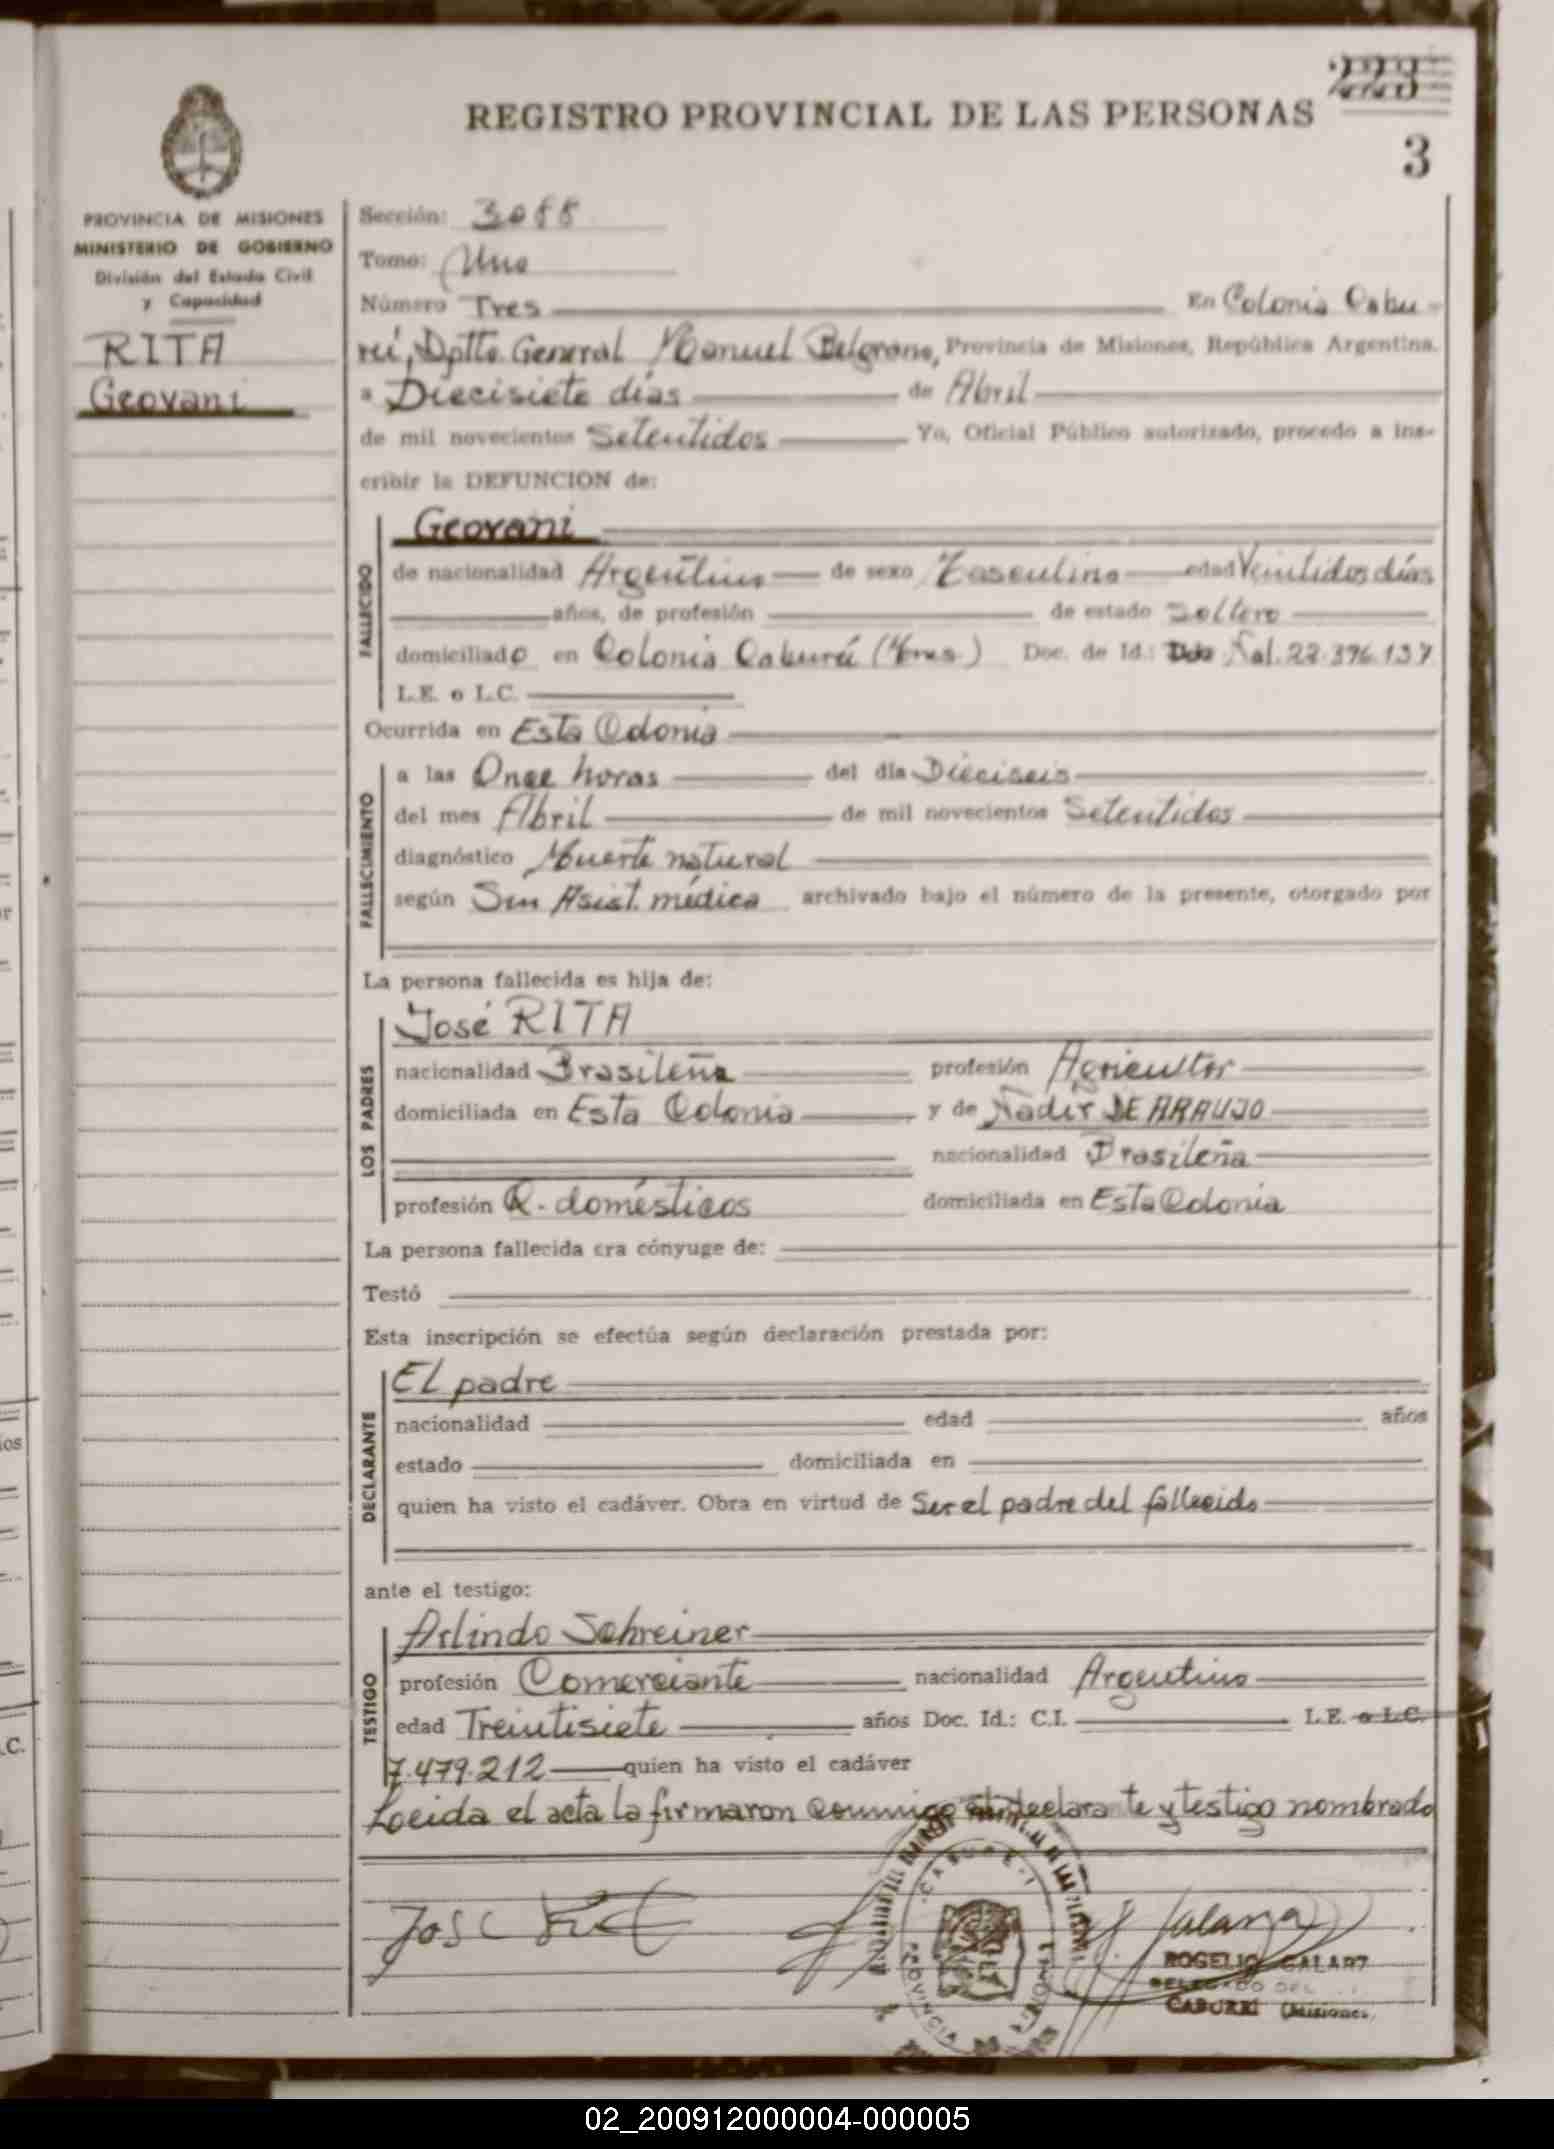 223
REGISTRO PROVINCIAL DE LAS PERSONAS
3
PROVINCIA DE MISIONES
MINISTERIO DE GOBIERNO
División del Estado Civil
y Capacidad
RITA
Geovani
Sección: 3088
Tomo: Uno
Número Tres En Colonia Cabu-
reí, Dptto General Manuel Belgrano, Provincia de Misiones, República Argentina.
a Diecisiete días de Abril
de mil novecientos Setentidos Yo, Oficial Público autorizado, procedo a ins-
cribir la DEFUNCION de:
FALLECIDO
Geovani
de nacionalidad Argentino de sexo Masculino edad Veintidos días
años, de profesión de estado Soltero
domiciliado en Colonia Cabureí (Mnes.) Doc. de Id.: Nal. 22.396.137
L.E. o L.C.
Ocurrida en Esta Colonia
FALLECIMIENTO
a las Once horas del día Dieciseis
del mes Abril de mil novecientos Setentidos
diagnóstico Muerte natural
según Sin Asist. médica archivado bajo el número de la presente, otorgado por
La persona fallecida es hija de:
LOS PADRES
José RITA
nacionalidad Brasileña profesión Agricultor
domiciliada en Esta Colonia y de Nadir DE ARAUJO
nacionalidad Brasileña
profesión Q. domésticos domiciliada en Esta Colonia
La persona fallecida era cónyuge de:
Testó
Esta inscripción se efectúa según declaración prestada por:
DECLARANTE
El padre
nacionalidad edad años
estado domiciliada en
quien ha visto el cadáver. Obra en virtud de Ser el padre del fallecido
ante el testigo:
TESTIGO
Arlindo Schreiner
profesión Comerciante nacionalidad Argentino
edad Treintisiete años Doc. Id.: C.I. L.E. o L.C.
7.479.212 quien ha visto el cadáver
Loeida el acta la firmaron conmigo el declarante y testigo nombrado
José Rita
R. Galarza
ROGELIO GALARZ
DELEGADO DEL
CABUREÍ (Misiones)
CABUREI
PROVINCIA MISIONES
02_200912000004-000005